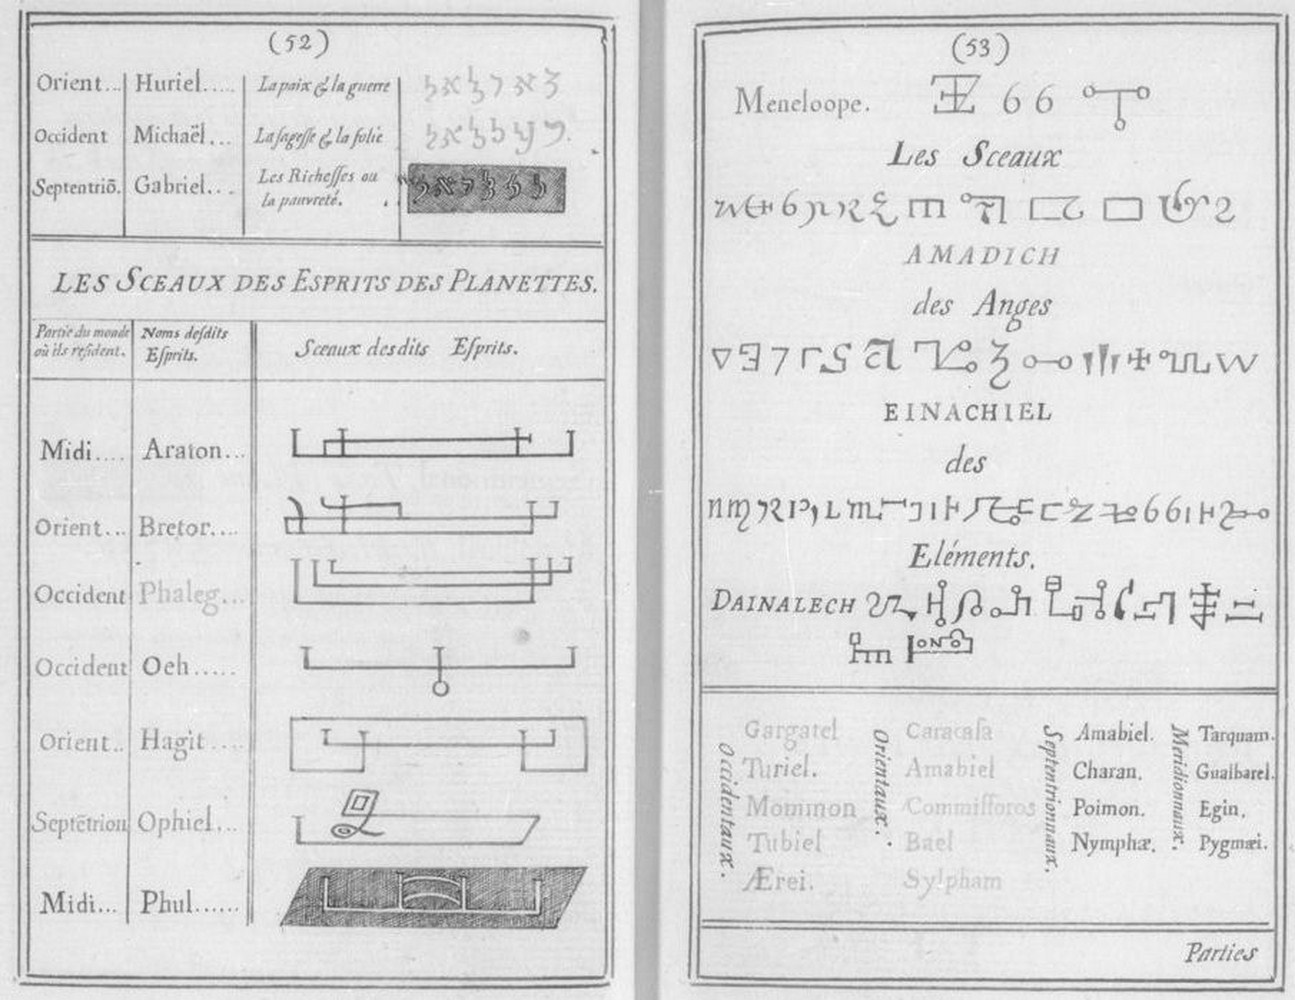 (52)
Orient... Huriel..... La paix & la guerre
Occident Michaël... La sagesse & la folie
Septentriõ. Gabriel... Les Richesses ou
la pauvreté.
LES SCEAUX DES ESPRITS DES PLANETTES.
Partie du monde Noms desdits Sceaux desdits Esprits.
où ils resident. Esprits.
Midi.... Araton...
Orient... Bretor....
Occident Phaleg...
Occident Oeh.....
Orient.. Hagit ....
Septẽtrion Ophiel...
Midi... Phul......
(53)
Meneloope. 66
Les Sceaux
AMADICH
des Anges
EINACHIEL
des
Eléments.
DAINALECH
Occidentaux.
Gargatel
Turiel.
Mommon
Tubiel
Ærei.
Orientaux.
Caracasa
Amabiel
Commissoros
Bael
Sylpham
Septentrionnaux.
Amabiel.
Charan.
Poimon.
Nymphæ.
Meridionnaux.
Tarquam.
Gualbarel.
Egin.
Pygmæi.
Parties